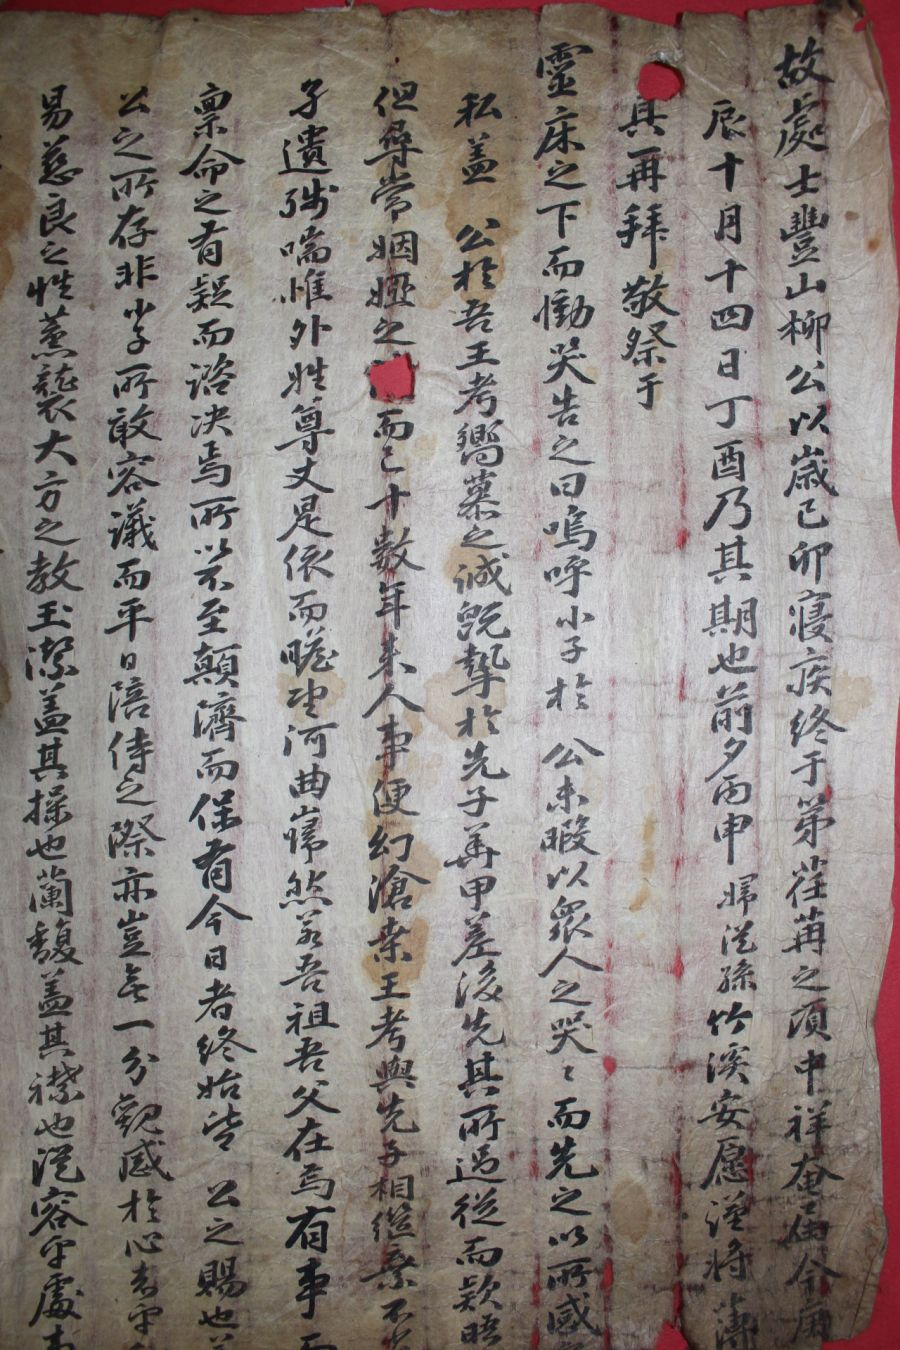 故處士豐山柳公以歲己卯寢疾終于第荏苒之頃中祥奄屆今庚
辰十月十四日丁酉乃其期也前夕丙申婦從孫竹溪安愿謹將薄
具再拜敬祭于
靈床之下而慟哭告之曰嗚呼小子於 公未暇以衆人之哭〻而先之以所感
私盖 公於吾王考嚮慕之誠旣摯於先子年甲差後先其所過從而欵晤
但尋常姻婭之 而已十數年來人事便幻滄桑王考與先子相繼棄不
子遺殘喘惟外姓尊丈是依而瞻望河曲巋然若吾祖吾父在焉有事而
禀命之有疑而諮决焉所以不至顚濟而保有今日者終始皆 公之賜也
公之所存非小子所敢容議而平日陪侍之際亦豈無一分觀感於心者乎
易慈良之性薰襲大方之教玉潔盖其操也蘭馥盖其襟也從容乎處